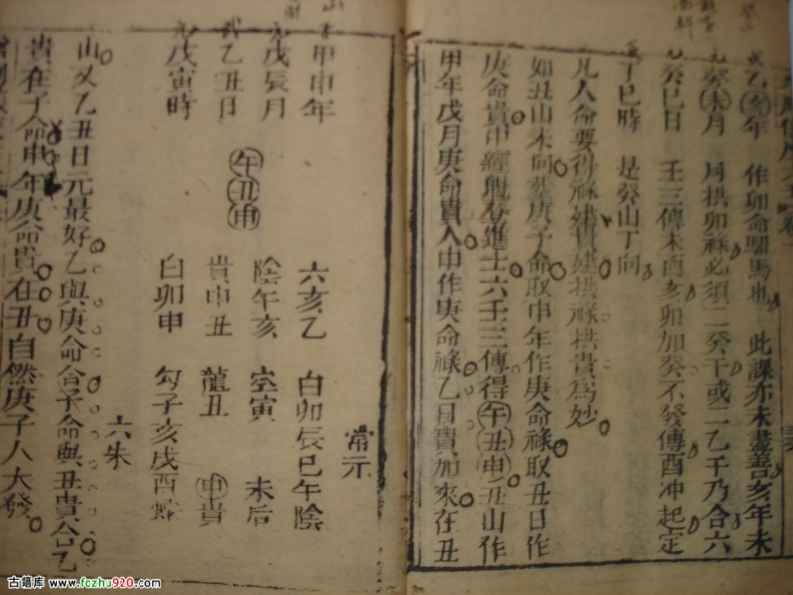 乙亥年 作卯命馹馬也 此課亦未盡善亥年未
癸未月 局拱卯祿必須二癸干或二乙干乃合六
癸巳日 壬三傳未酉亥卯加癸不發傳酉冲起定
丁巳時 是癸山丁向
凡人命要得祿建貴建拱祿拱貴為妙
如丑山未向葬庚子命取申年作庚命祿取丑日作
庚命貴申纒觀春進士六壬三傳得午丑申丑山作
甲年戊月庚命貴人申作庚命祿乙日貴加來在丑
甲申年
戊辰月
乙丑日
戊寅時
午丑申
常示
六亥乙 白卯辰巳午陰
陰午亥 空寅 未后
貴申丑 龍丑 申貴
白卯申 勾子亥戌酉蛇
六朱
山又乙丑日元最好乙與庚命合子命與丑貴合乙
貴在子命申年庚命貴在丑自然庚子人大發
古籍库 www.fozhu920.com